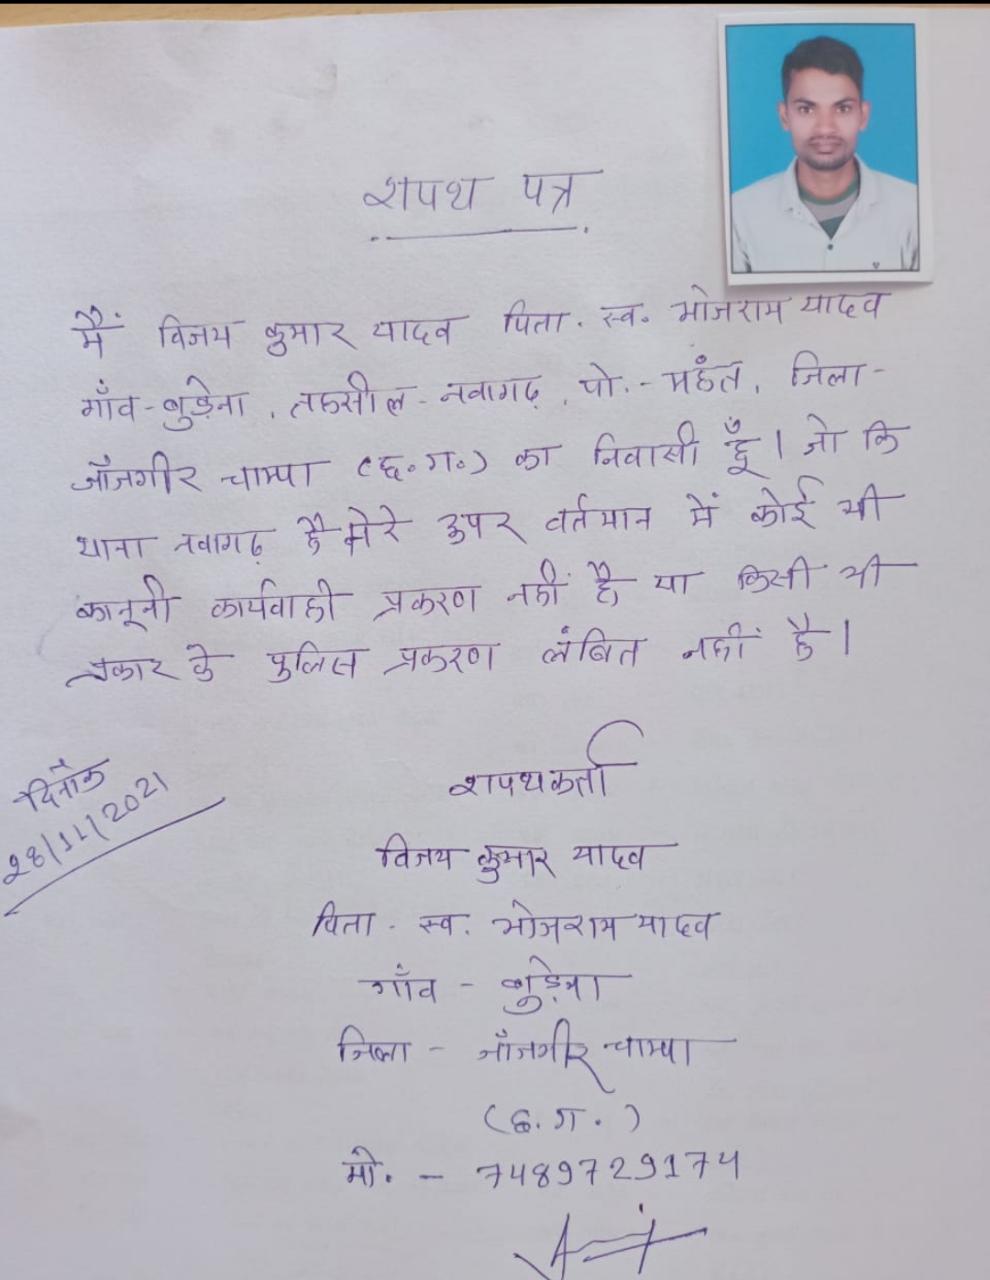 शपथ पत्र
मैं विजय कुमार यादव पिता. स्व. भोजराम यादव
गाँव-बुड़ेना, तहसील-नवागढ़, पो.-महंत, जिला-
जाँजगीर चाम्पा (छ.ग.) का निवासी हूँ। जो कि
थाना नवागढ़ है मेरे उपर वर्तमान में कोई भी
कानूनी कार्यवाही प्रकरण नहीं है, या किसी भी
प्रकार के पुलिस प्रकरण लंबित नहीं है।
दिनाँक
28/11/2021
शपथकर्ता
विजय कुमार यादव
पिता. स्व. भोजराम यादव
गाँव - बुड़ेना
जिला - जाँजगीर चाम्पा
(छ.ग.)
मो. - 7489729174